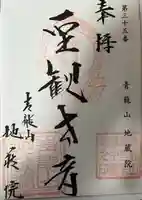 第三十三番
青龍山 地蔵院
奉拝
聖観世音
青龍山
地蔵院